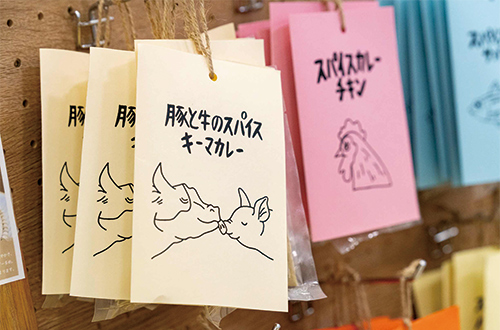 豚と牛のスパイス
キーマカレー
スパイスカレー
チキン